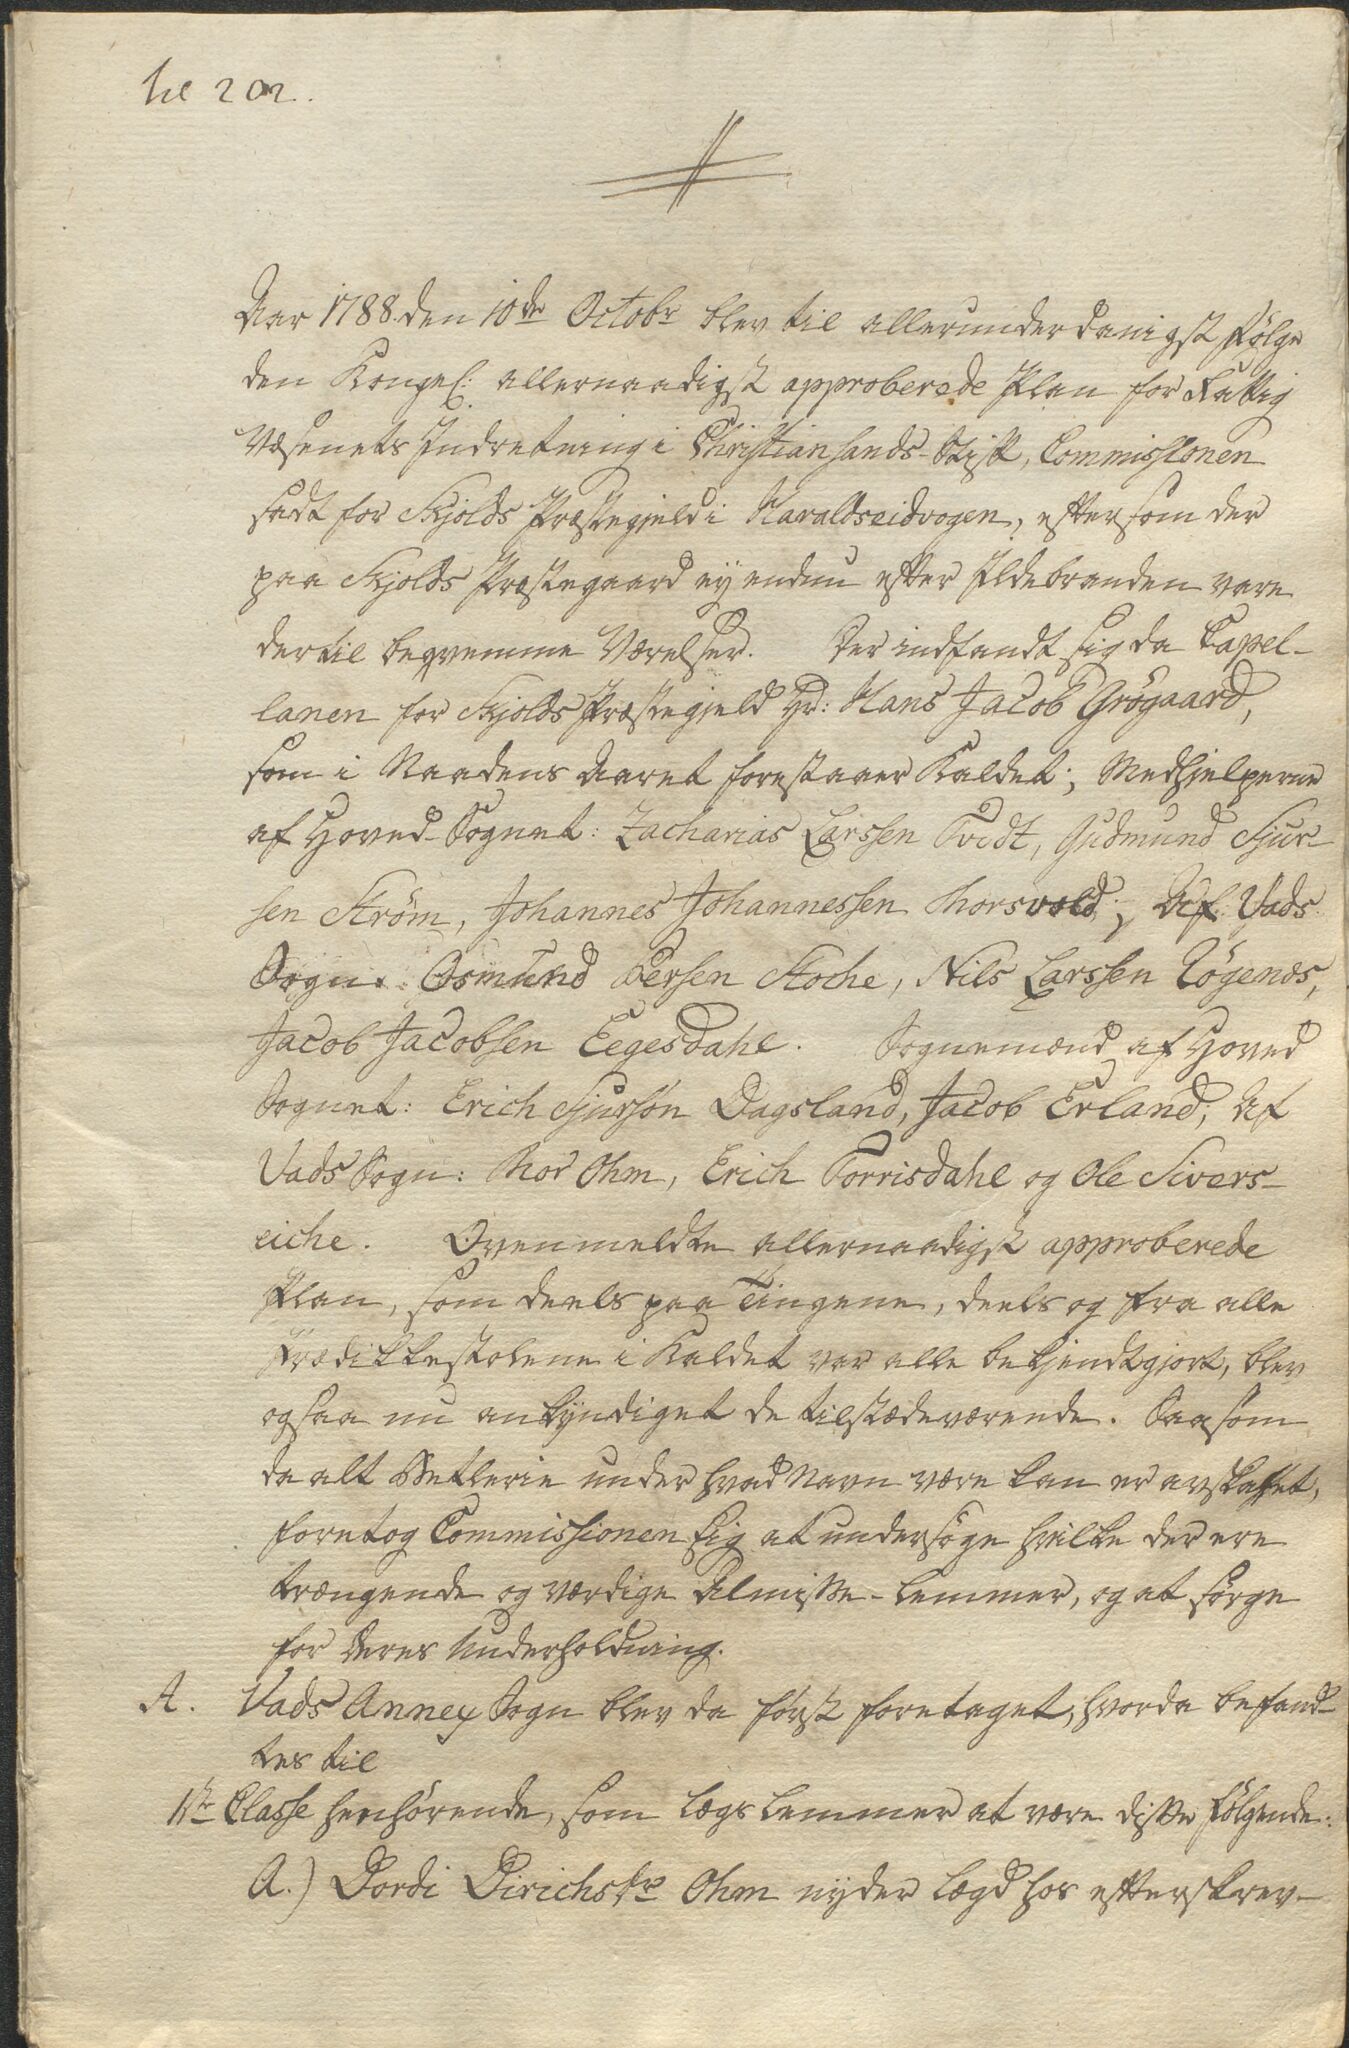 til 202.
Aar 1788. den 10de Octobr blev til allerunderdanigst Følge
den Kongel: allernaadigst approberede Plan for Fattig
Væsenets Indretning i Christiansands-Stift, Commissionen
sadt for Skjolds Præstegjeld i Haraldseidvogen, eftersom der
paa Skjolds Præstegaard ej endnu efter Ildebranden vare
dertil beqvemme Værelser. Der indfandt sig da Capel-
lanen for Skjolds Præstegjeld Hr: Hans Jacob Grøgaard,
som i Naadens Aaret forestaaer Kaldet; Medhjelperne
af Hoved-Sognet: Zacharias Larssen Tvedt, Gudmund Sjur-
sen Strøm, Johannes Johannessen Thorsvold; Af Vads
Sogn: Osmund Persen Stoche, Nils Larssen Røgenes,
Jacob Jacobsen Eegesdahl. Sognemænd af Hoved
Sognet: Erich Sjursøn Dagsland, Jacob Erland; Af
Vads Sogn: Thor Ohm, Erich Torrisdahl og Ole Sivers-
eiche. Ovenmeldte allernaadigst approberede
Plan, som deels paa Tingene, deels og fra alle
Prædikkestolene i Kaldet var alle bekjendtgjort, blev
ogsaa nu ankyndiget de tilstædeværende. Saasom
da alt Betlerie under hvad Navn være kan er avskaffet,
foretog Commissionen sig at undersøge hvilke der ere
trængende og værdige Almisse-Lemmer, og at sørge
for deres Underholdning.
A. Vads Annex Sogn blev da først foretaget, hvorda befand-
tes til
1ste Classe henhørende, som Lægs Lemmer at være disse følgende:
A.) Dordi Dirichsdr Ohm nyder Lægd hos efterskrev-